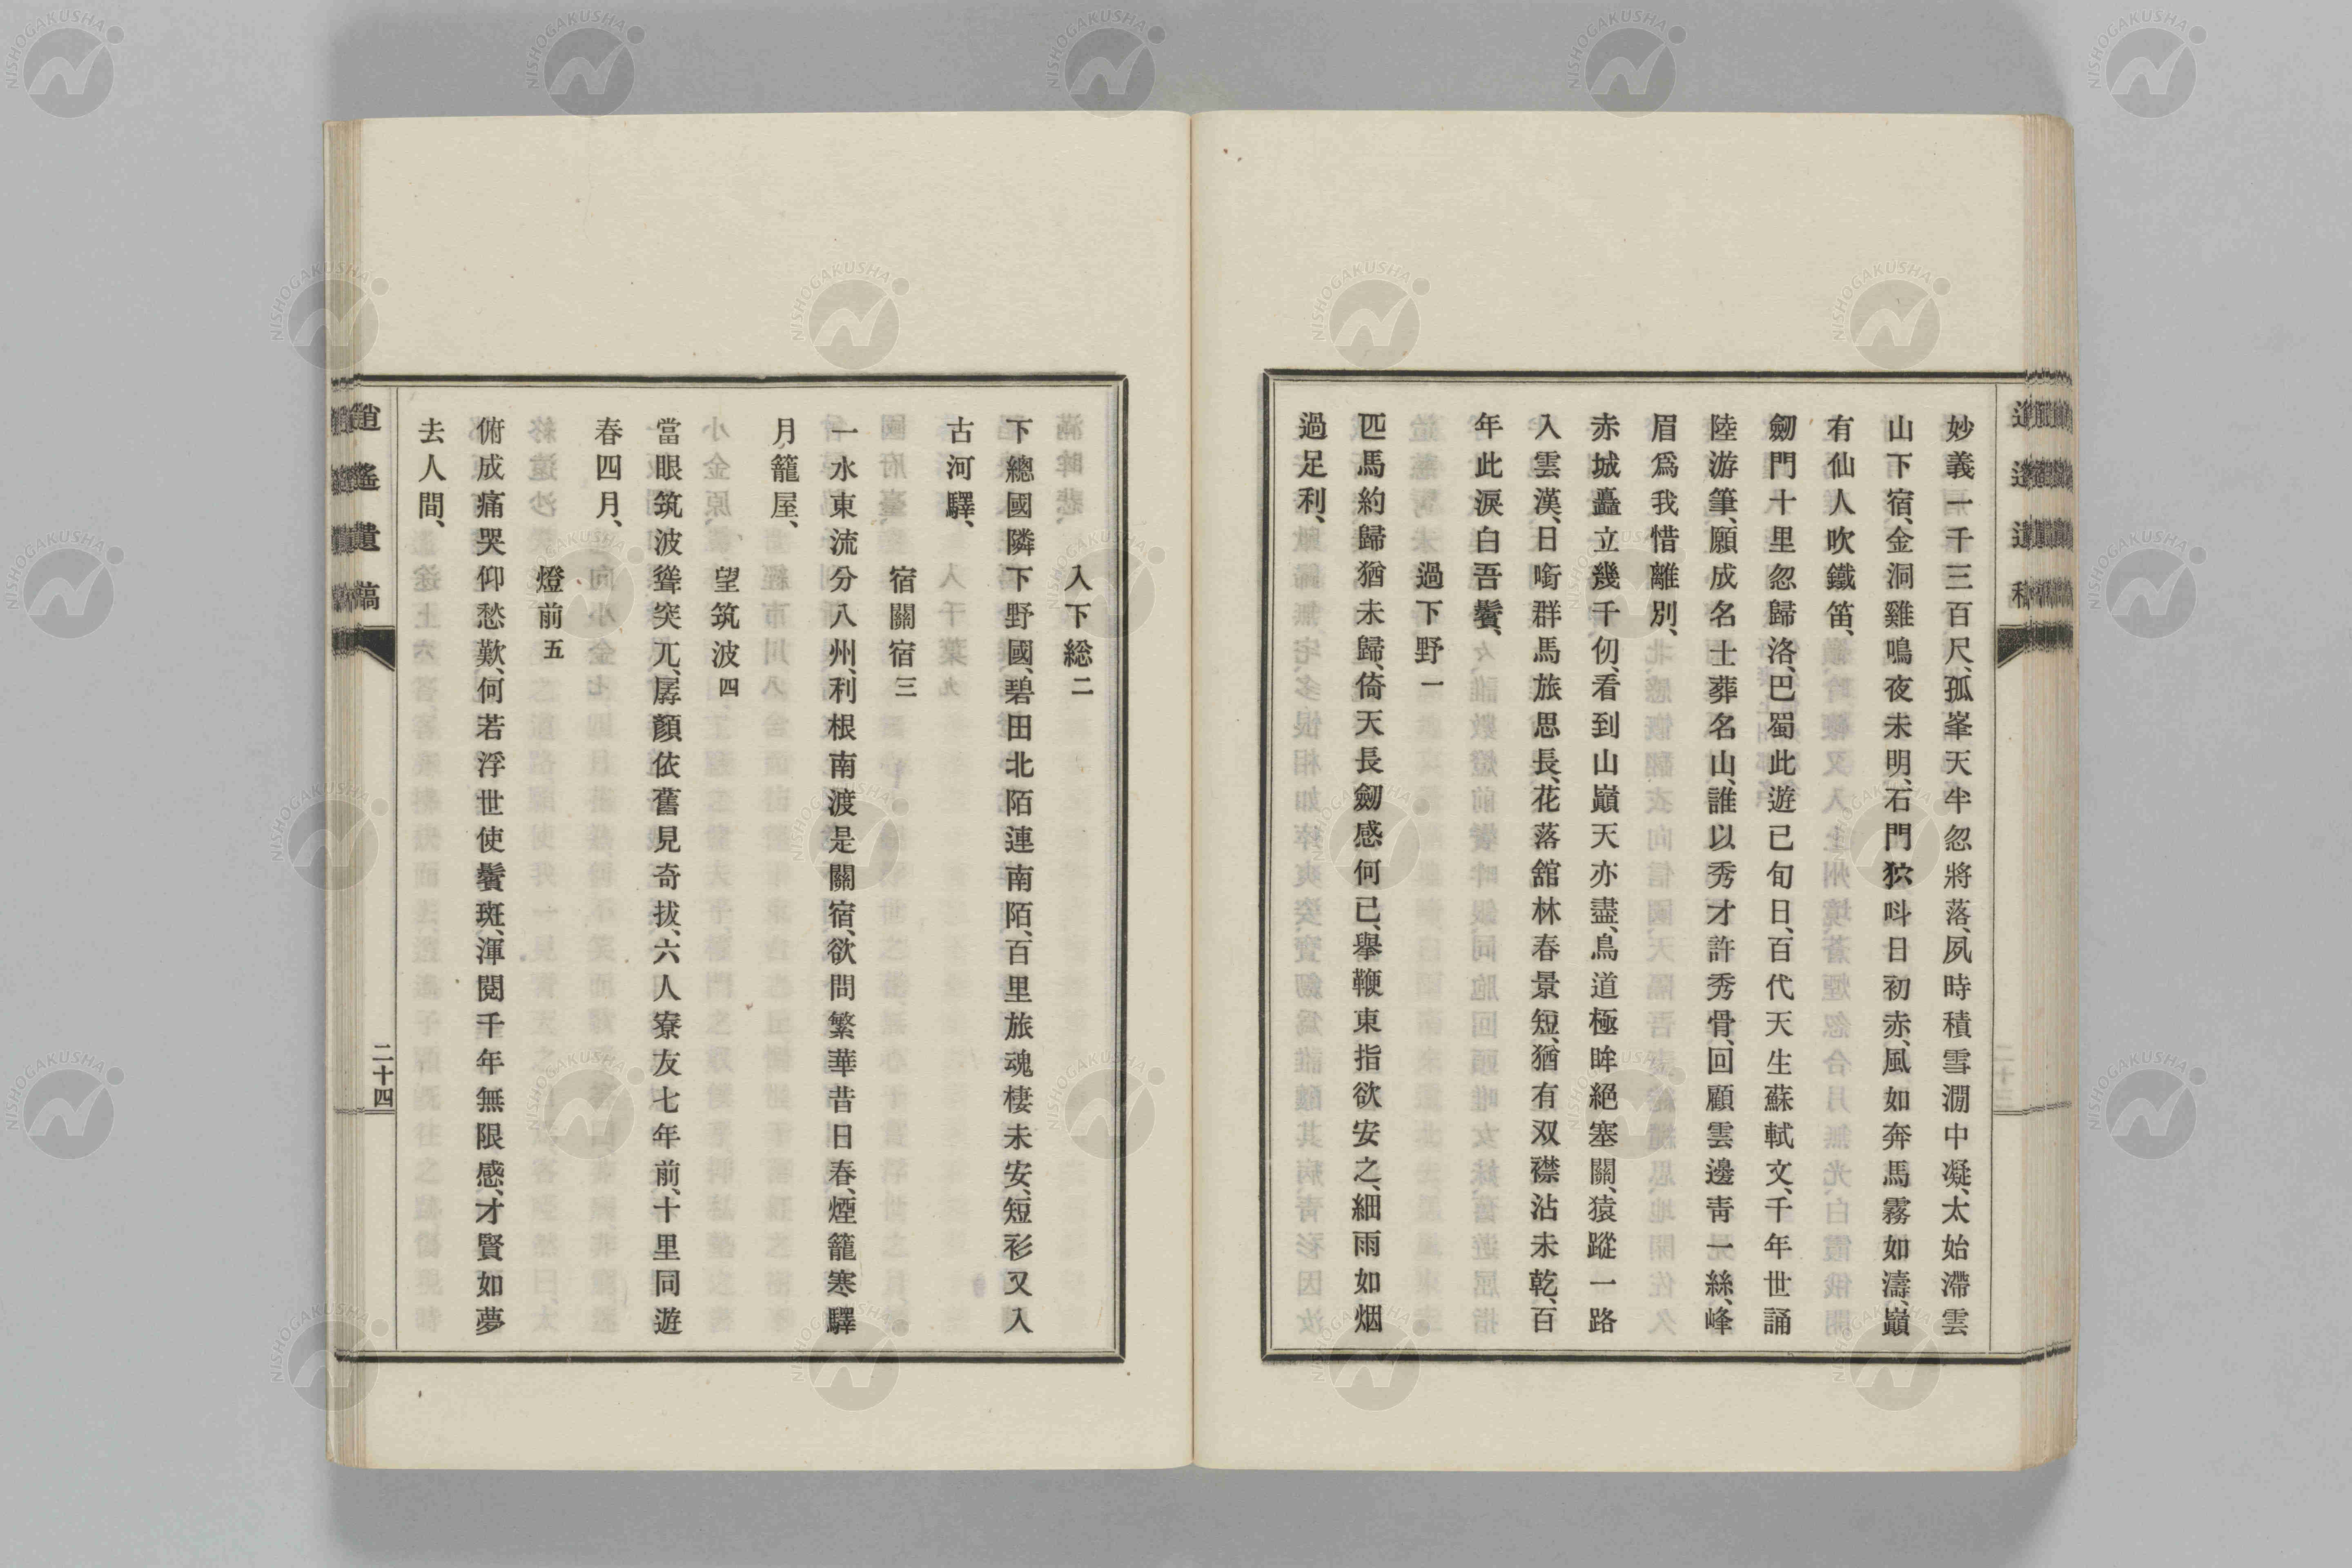 妙義一千三百尺、孤峯天半忽將落、夙時積雪澗中凝、太始滯雲
山下宿、金洞雞鳴夜未明、石門狖呌日初赤、風如奔馬霧如濤、巓
有仙人吹鐵笛、
劒門十里忽歸洛、巴蜀此遊已旬日、百代天生蘇軾文、千年世誦
陸游筆、願成名士葬名山、誰以秀才許秀骨、回顧雲邊靑一絲、峰
眉爲我惜離別、
赤城矗立幾千仞、看到山巓天亦盡、鳥道極眸絕塞關、猿蹤一路
入雲漢、日啣群馬旅思長、花落舘林春景短、猶有双襟沾未乾、百
年此淚白吾鬢、
過下野一
匹馬約歸猶未歸、倚天長劒感何已、擧鞭東指欲安之、細雨如烟
過足利、
入下総二
下總國隣下野國、碧田北陌連南陌、百里旅魂棲未安、短衫又入
古河驛、
宿關宿三
一水東流分八州、利根南渡是關宿、欲問繁華昔日春、煙籠寒驛
月籠屋、
望筑波四
當眼筑波聳突兀、孱顏依舊見奇拔、六人寮友七年前、十里同遊
春四月、
燈前五
俯成痛哭仰愁歎、何若浮世使鬢斑、渾閱千年無限感、才賢如夢
去人間、
遺稿
二十四
NISHOGAKUSHA